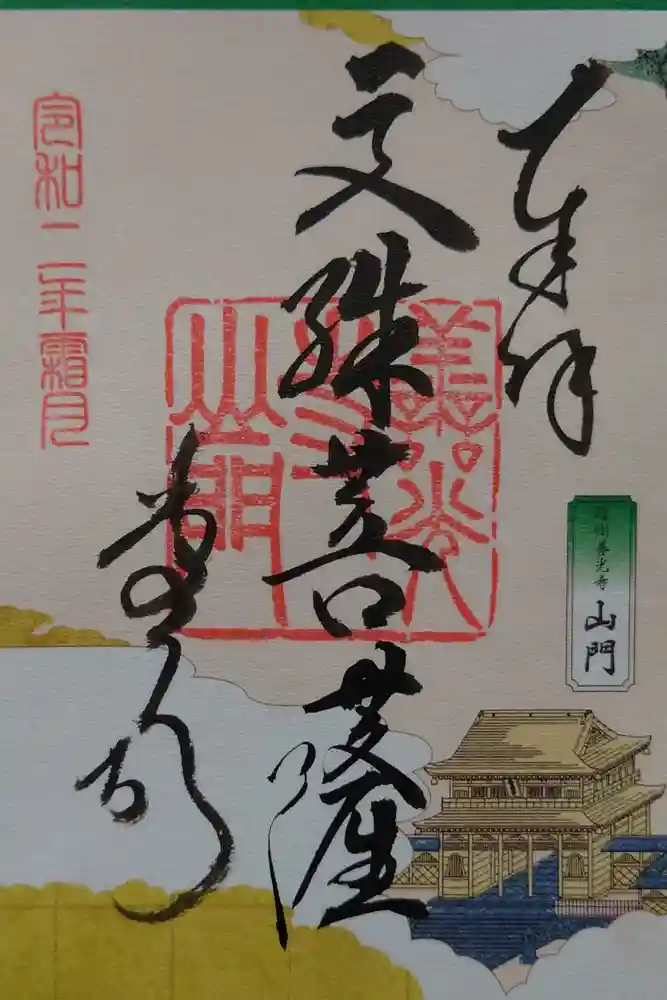 奉拝
文殊菩薩
善光寺
信州善光寺
山門
善光寺
山門
令和二年霜月